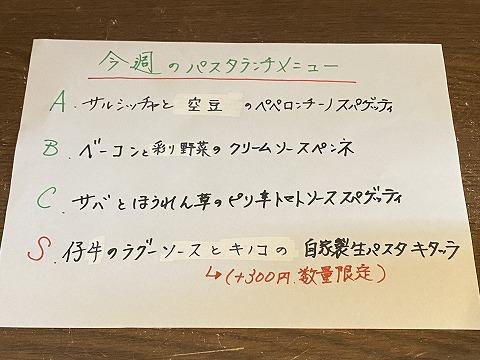 今週のパスタランチメニュー
A. サルシッチャと 空豆 のペペロンチーノスパゲッティ
B. ベーコンと彩り野菜のクリームソースペンネ
C. サバとほうれん草のピリ辛トマトソーススパゲッティ
S. 仔牛のラグーソースとキノコの 自家製生パスタキタッラ
↳(+300円.数量限定)